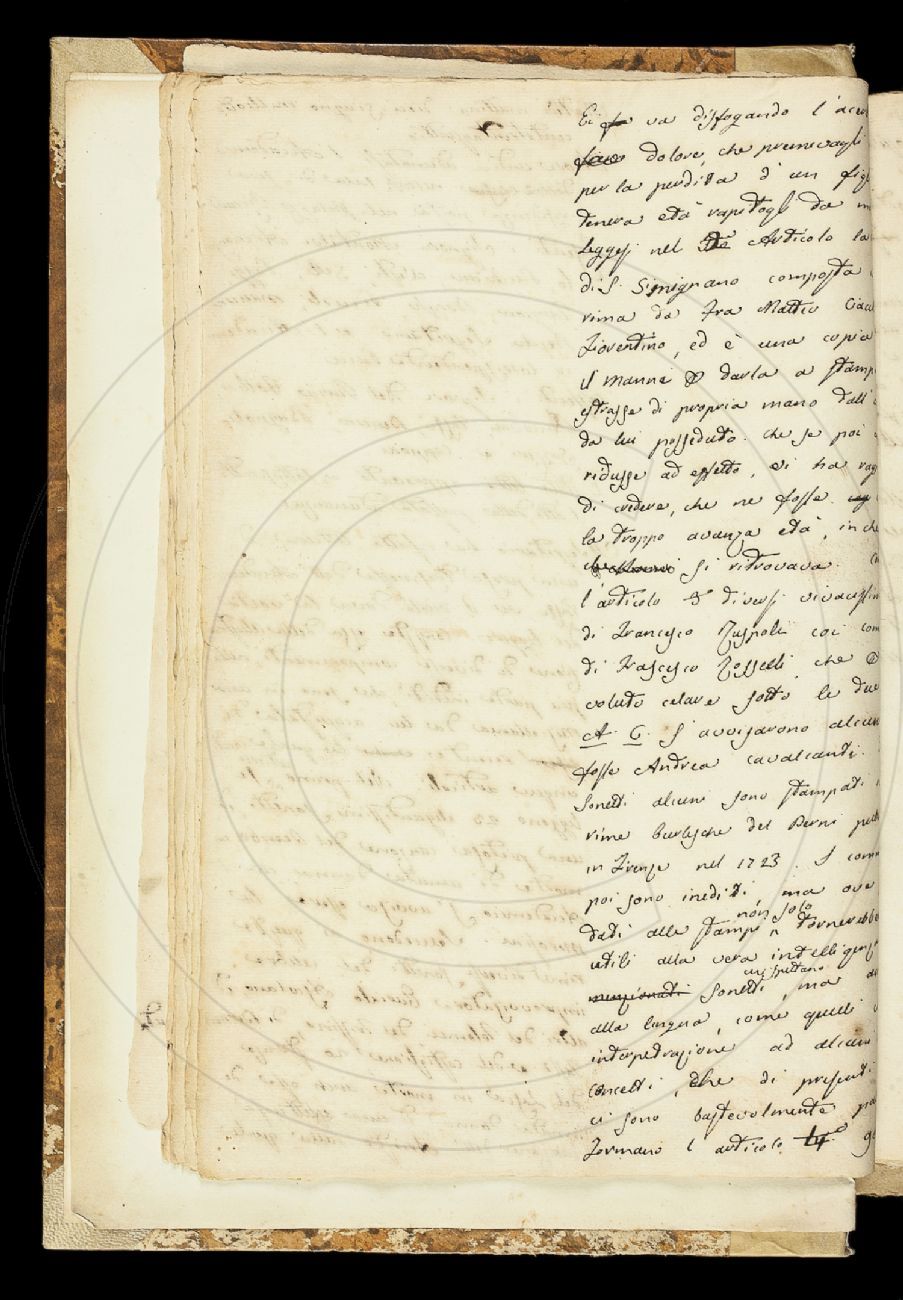 Ei va disfogando l'acer
dolore, che premevagli
per la perdita d'un fig
tenera età rapitogli da m
Leggesi nel Articolo la
di S. Simignano composta
rima da Fra Matteo Ciac
Fiorentino, ed è una copia
il Manni darla a stamp
estrasse di propria mano dall'
da lui posseduto. Che se poi
ridusse ad effetto, vi ha rag
di credere, che ne fosse
la troppo avanza età, in che
si ritrovava.
l'articolo 5° diversi vivacissim
di Francesco Ruspoli coi com
di Frascesco Rosselli che
voluto celare sotto le due
A. C. S'avvisarono alcun
fosse Andrea Cavalcanti.
Sonetti alcuni sono stampati
rime burlesche del Berni pub
in Firenze nel 1723. I comm
poi sono inediti, ma ove
dati alle stampe non solo tornerebbe
utili alla vera intelligenz
menzionati Sonetti, ma
alla lingua, come quelli
interpetrazione ad alcuni
Concetti, che di presenti
ci sono bastevolmente
Formano l'articolo